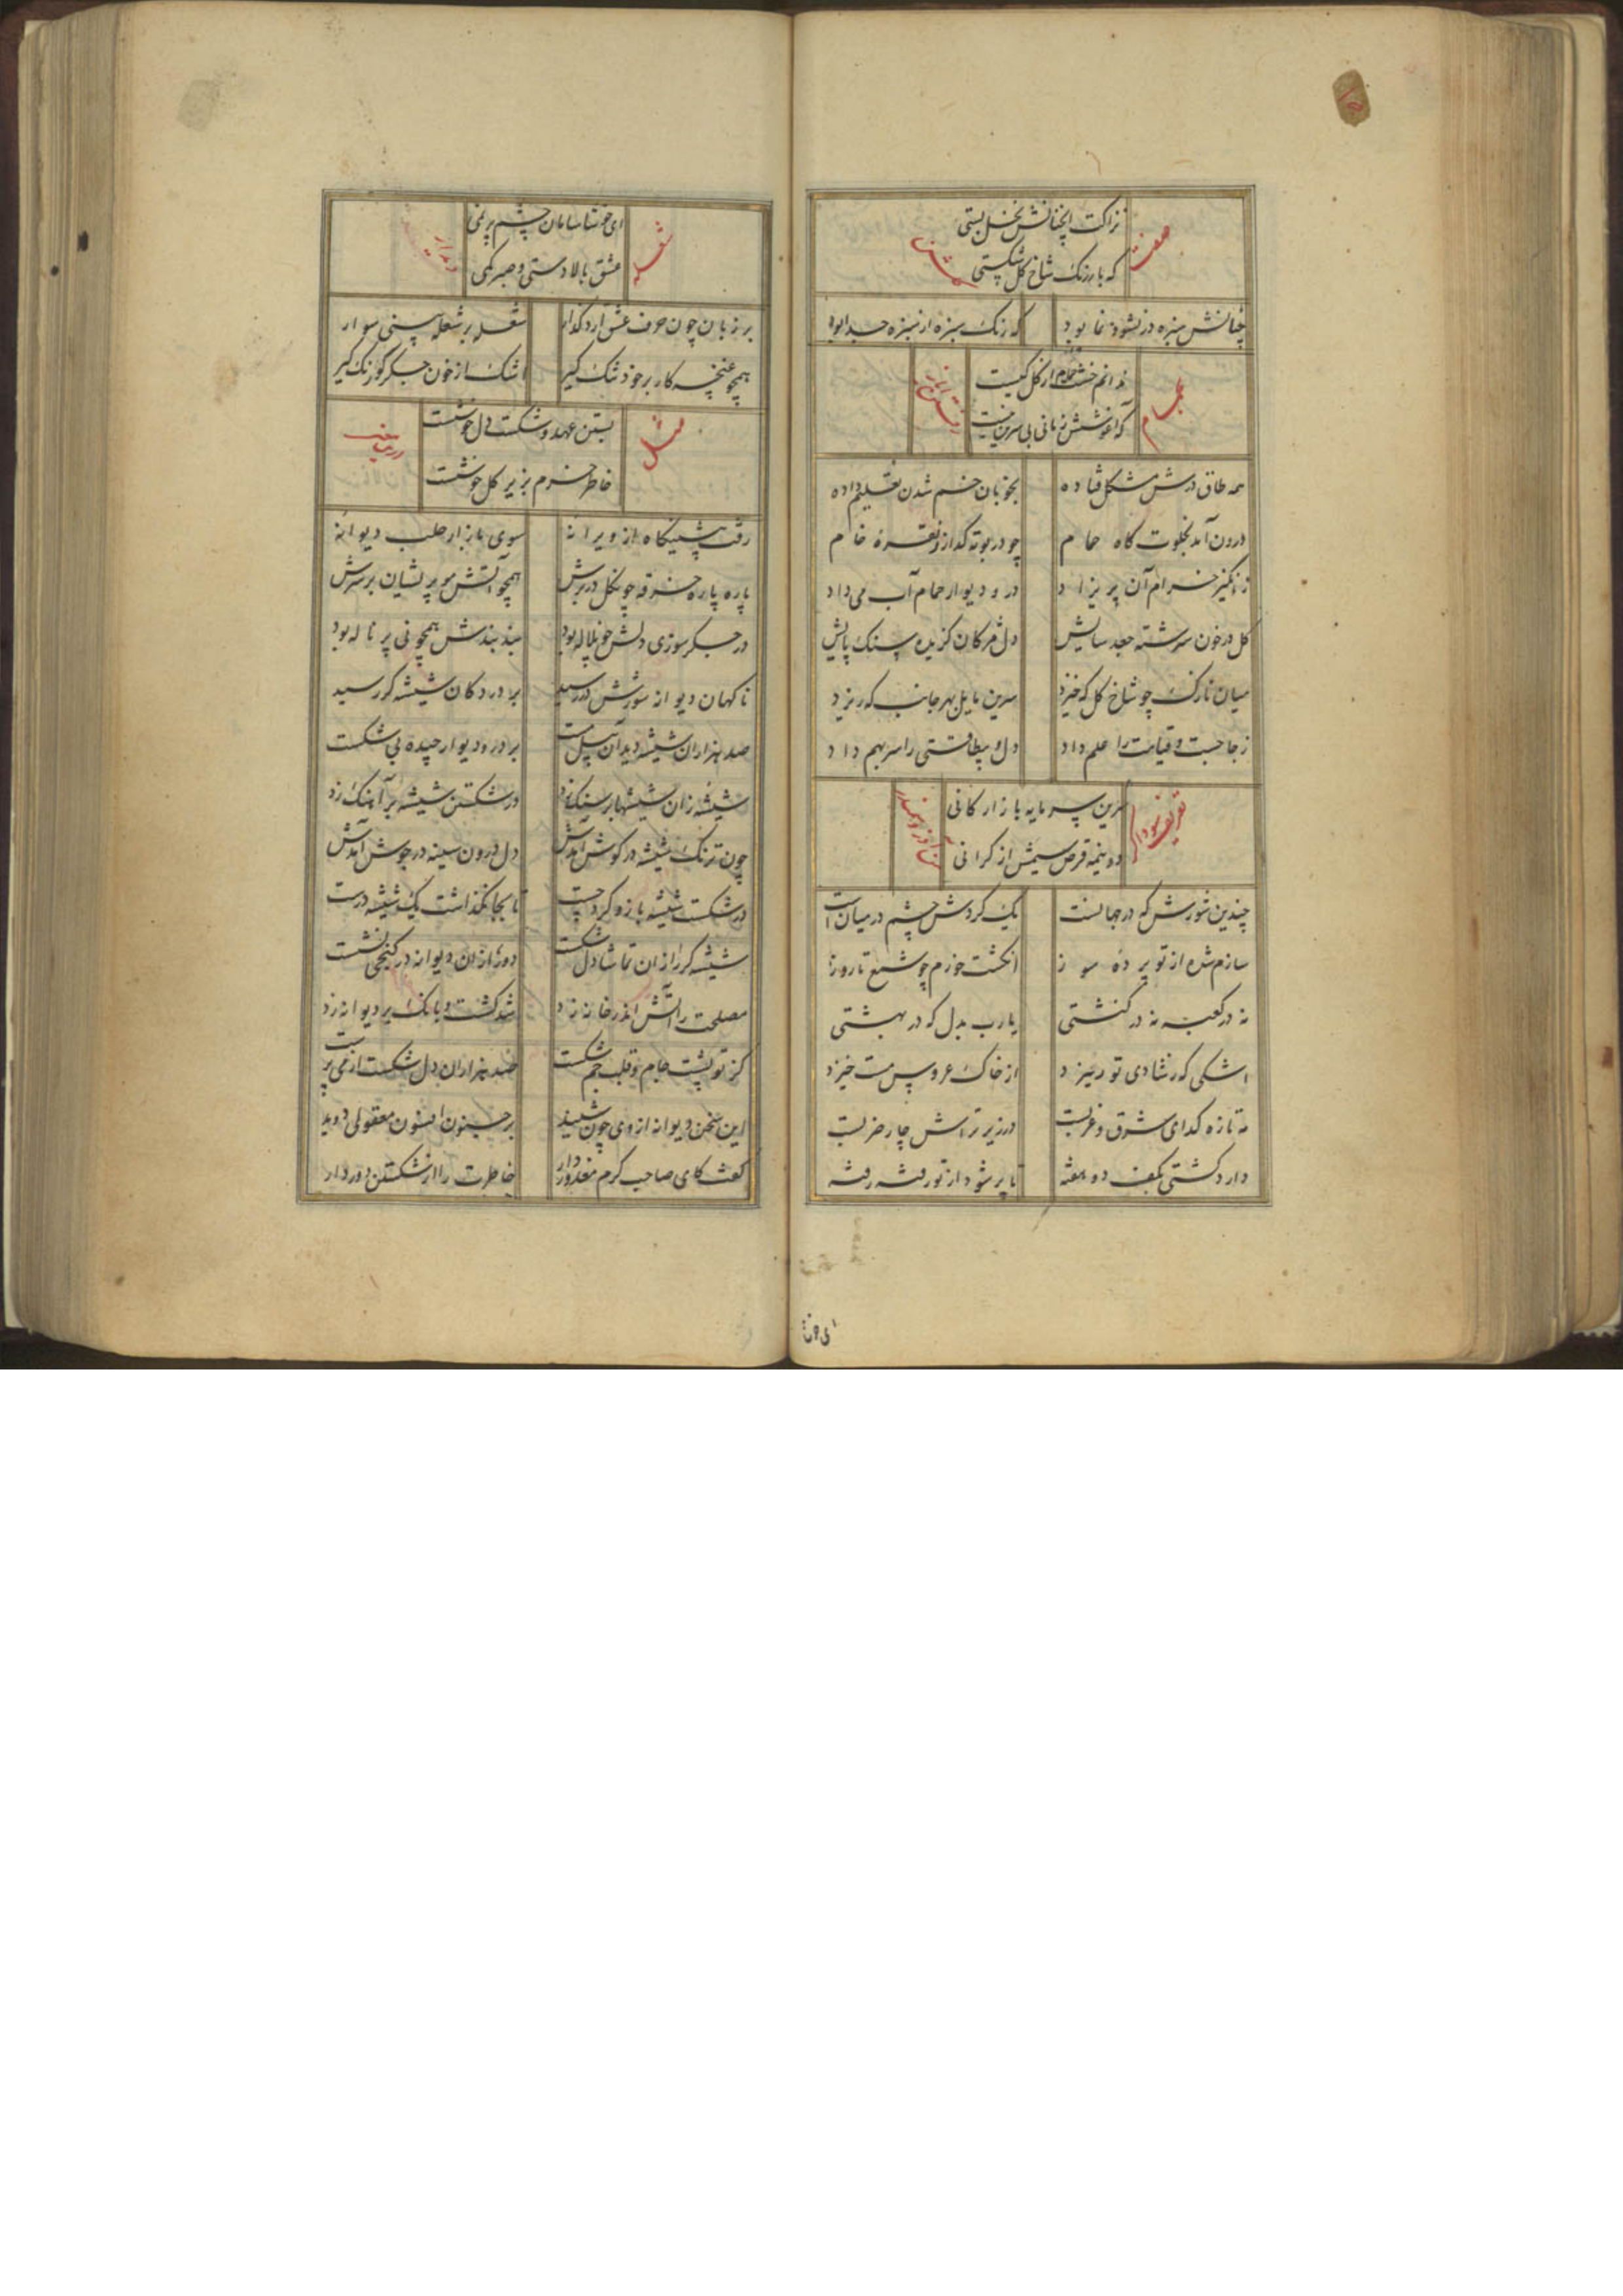 صفت
نزاکت آنچنانش نخل بستی
که بار رنگ شاخ گل شکستی
چنانش سبزه در نشو و نما بود
که رنک سبزه از سبزه جدا بود
حمام
ندانم خشت حمام از گل کیست
که آغوشش زمانی بی سرین نیست
همه طاق درش مشکل فتاده
بخوبان خم شدن تعلیم داده
درون آمد بخلوت کاه حمام
چو در بوته کداز نقره خام
ز انکیز خرام آن پریزاد
در و دیوار حمام آب می داد
کل در خون سرشته جعد سایش
دل مژکان کزیده سنک پایش
میان نازکش چو شاخ کل که خیزد
سرین مایل بهر جانب که ریزد
ز جا جست و قیامت را علم داد
دل و بیطاقتی را سر بهم داد
تعریف سودا
سرین سرمایه بازار کانی
دو نیمه قرص سیمش از کرانی
چندین شورش که در جهانست
یک کردش چشم در میان است
سازم شده از تو پرده سوز
انکشت خورم چو شمع تا روز
نه در کعبه نه در کنشتی
یارب بدل که در بهشتی
اشکی که ز شادی تو ریزد
از خاک عروس مست خیزد
نه تازه کدای شرق و غربست
در زیر تراش چار ضربست
دارد کشتی بکف دو هفته
تا پر شود از تو رفته رفته
ای خوشا
شعله
دیدار
ای خوشا سامان چشم پر نمی
عشق بالا دستی و صبر کمی
بر زبان چون حرف عشق آرد کذار
شعله بر شعله بینی سوار
همچو غنچه کار بر خود تنک کیر
اشک از خون جکر کو رنک کیر
مثل
بستن عهد و شکست دل خوشست
خاطر خرم بزیر کل خوشست
رفت پیشینکاه از ویرانه
سوی بازار حلب دیوانه
پاره پاره خرقه چون کل در برش
همچو آتش مو پریشان بر سرش
در جکر سوزی دلش چون لاله بود
بند بندش همچو نی پر ناله بود
ناکهان دیوانه شورش در رسید
بر در دکان شیشه کر رسید
صد هزاران شیشه دید آن پیل مست
بر در و دیوار چیده بی شکست
شیشه زان شیشها بر سنک زد
در شکستن شیشه بر آهنک زد
چون ترنک شیشه در کوش آمدش
دل درون سینه در جوش آمدش
در شکست شیشه بازو کرد چست
تا بجا نکذاشت یک شیشه درست
شیشه کر را زان تماشا دل شکست
دور از آن دیوانه در کنجی نشست
مصلحت را آتش اندر خانه زد
شد کشت و بانک بر دیوانه زد
کز تو پشت جام و قلب جم شکست
صد هزاران دل شکست از می پرست
این سخن دیوانه از وی چون شنید
بر جنون افسون معقولی دمید
کفت کای صاحب کرم معذور دار
خاطرت را از شکستن دور دار